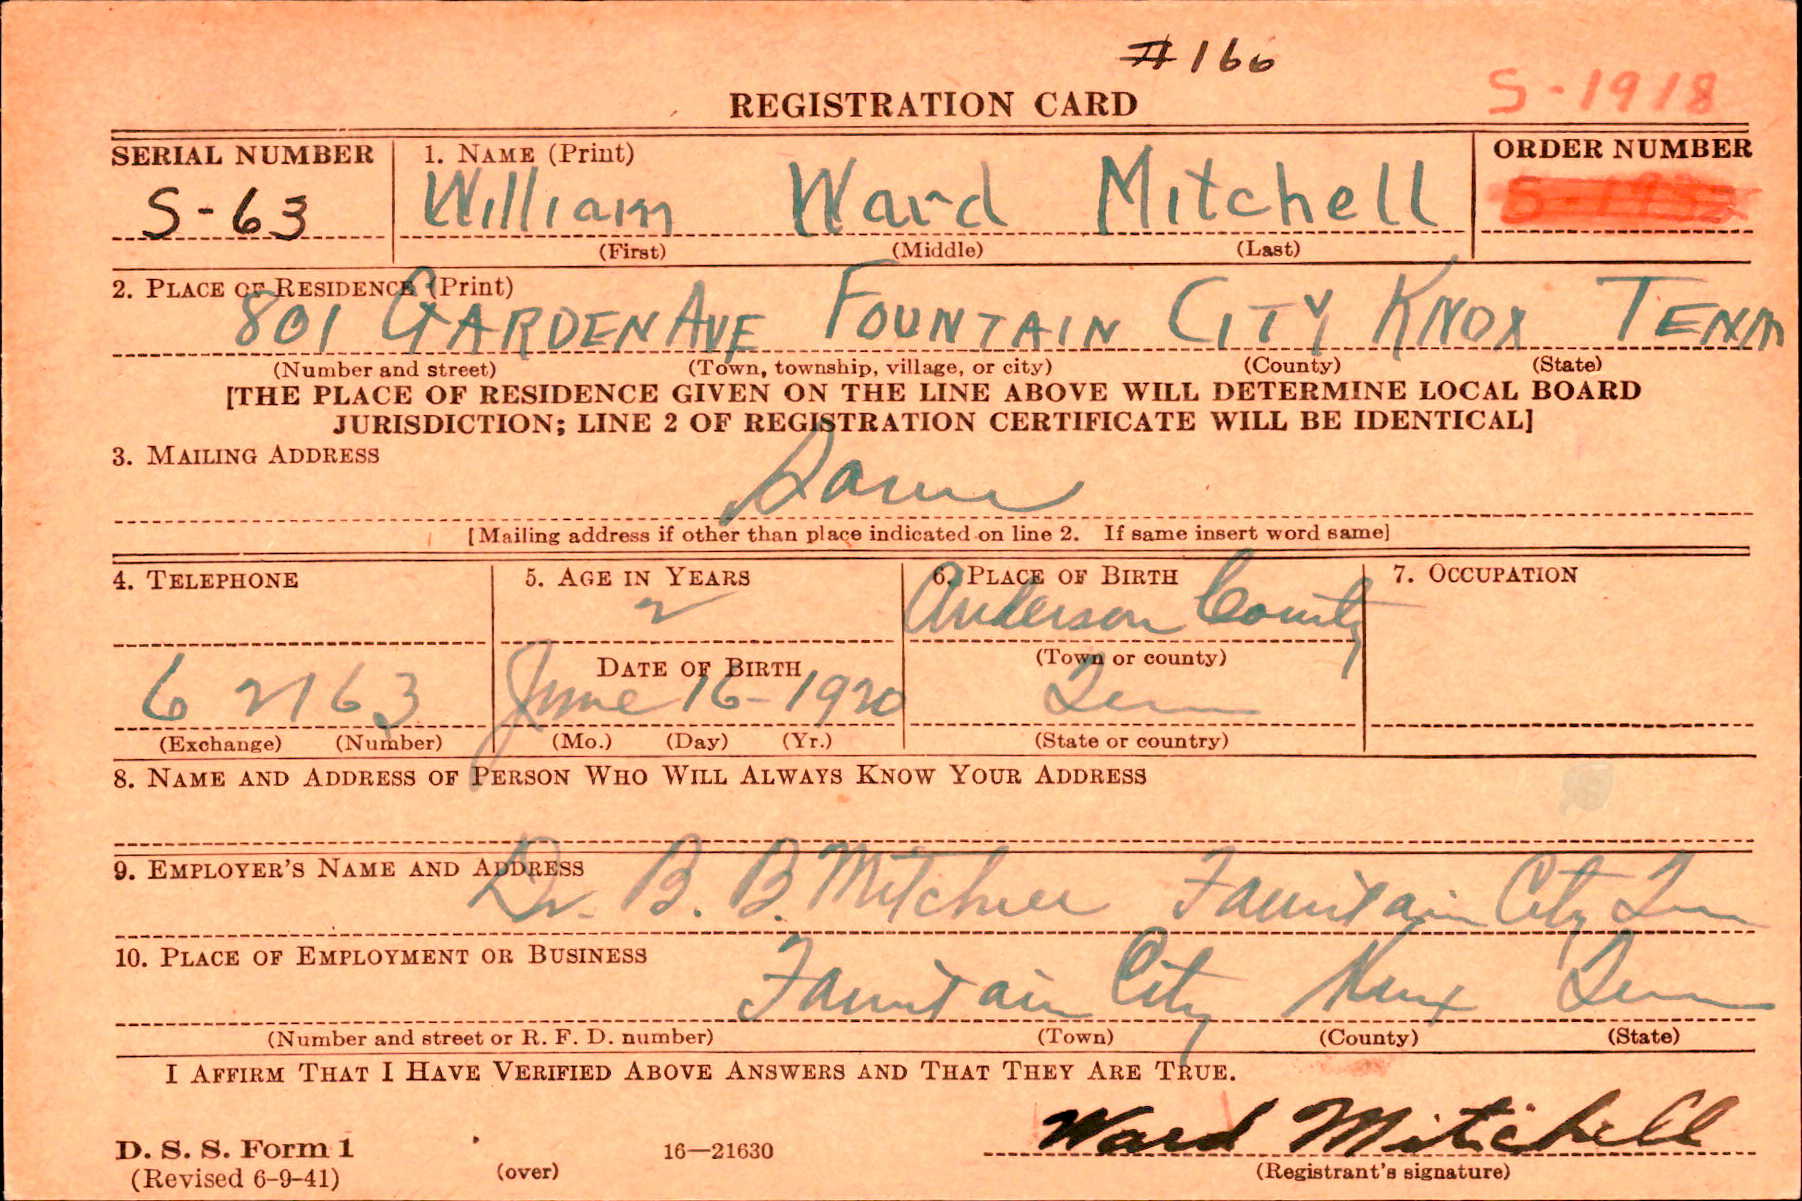 #166
REGISTRATION CARD
S-1918
SERIAL NUMBER 1. NAME (Print) ORDER NUMBER
S-63 William Ward Mitchell
(First) (Middle) (Last)
2. PLACE OF RESIDENCE (Print)
801 GARDEN AVE FOUNTAIN CITY KNOX TENN
(Number and street) (Town, township, village, or city) (County) (State)
[THE PLACE OF RESIDENCE GIVEN ON THE LINE ABOVE WILL DETERMINE LOCAL BOARD
JURISDICTION; LINE 2 OF REGISTRATION CERTIFICATE WILL BE IDENTICAL]
3. MAILING ADDRESS
Same
[Mailing address if other than place indicated on line 2. If same insert word same]
4. TELEPHONE 5. AGE IN YEARS 6. PLACE OF BIRTH 7. OCCUPATION
2 Anderson County
DATE OF BIRTH (Town or county)
6 2163 June 16-1920 Tenn
(Exchange) (Number) (Mo.) (Day) (Yr.) (State or country)
8. NAME AND ADDRESS OF PERSON WHO WILL ALWAYS KNOW YOUR ADDRESS
9. EMPLOYER'S NAME AND ADDRESS
Dr. B. B. Mitchell Fountain City Tenn
10. PLACE OF EMPLOYMENT OR BUSINESS
Fountain City Knox Tenn
(Number and street or R. F. D. number) (Town) (County) (State)
I AFFIRM THAT I HAVE VERIFIED ABOVE ANSWERS AND THAT THEY ARE TRUE.
Ward Mitchell
D. S. S. Form 1
(Revised 6-9-41) (over) 16—21630 (Registrant's signature)